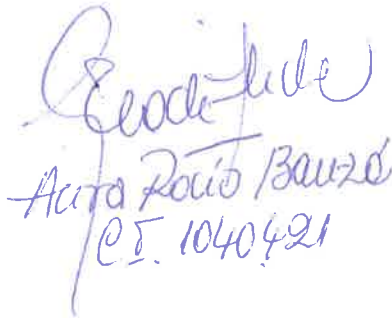 Aura Rocío Bauzá
C.I. 1040421